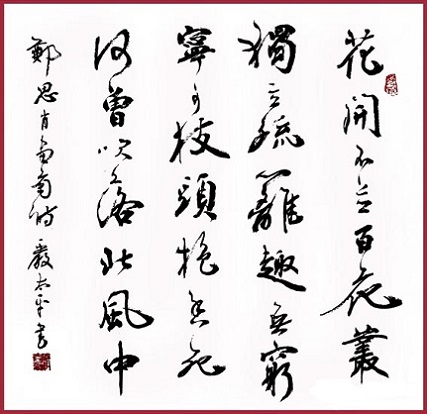 花開不並百花叢
獨立疏籬趣無窮
寧可枝頭抱香死
何曾吹落北風中
鄭思肖畫菊詩 嚴太平書